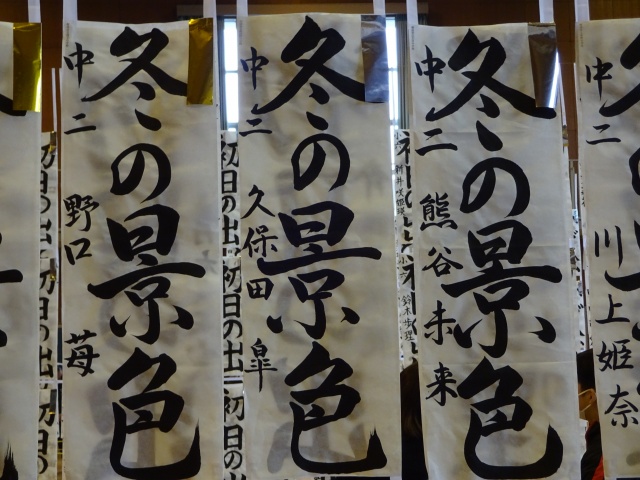 冬の景色
中二 野口 苺
冬の景色
中二 久保田 皐
冬の景色
中二 熊谷未来
中二 川上姫奈
初日の出
初日の出
初日の出
初日の出
初日の出
初日の出